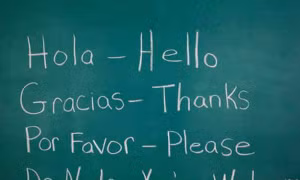 Hola – Hello
Gracias – Thanks
Por Favor – Please